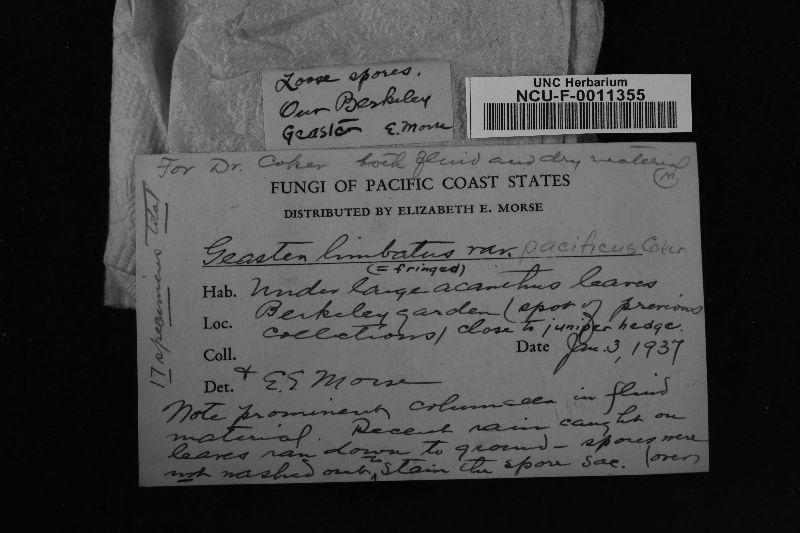 Loose spores.
Our Berkeley
Geaster E. Morse
UNC Herbarium
NCU-F-0011355
For Dr. Coker both fluid and dry material
FUNGI OF PACIFIC COAST STATES
DISTRIBUTED BY ELIZABETH E. MORSE
17 specimens total
Geaster limbatus var. pacificus Coker
(= fringed)
Hab. Under large acanthus leaves
Loc. Berkeley garden (spot of previous
collections) close to juniper hedge.
Coll. Date Jan. 3, 1937
Det. + E.E. Morse
Note prominent columella in fluid
material. Recent rain caught on
leaves ran down to ground - spores were
not washed out, stain the spore sac. (over)